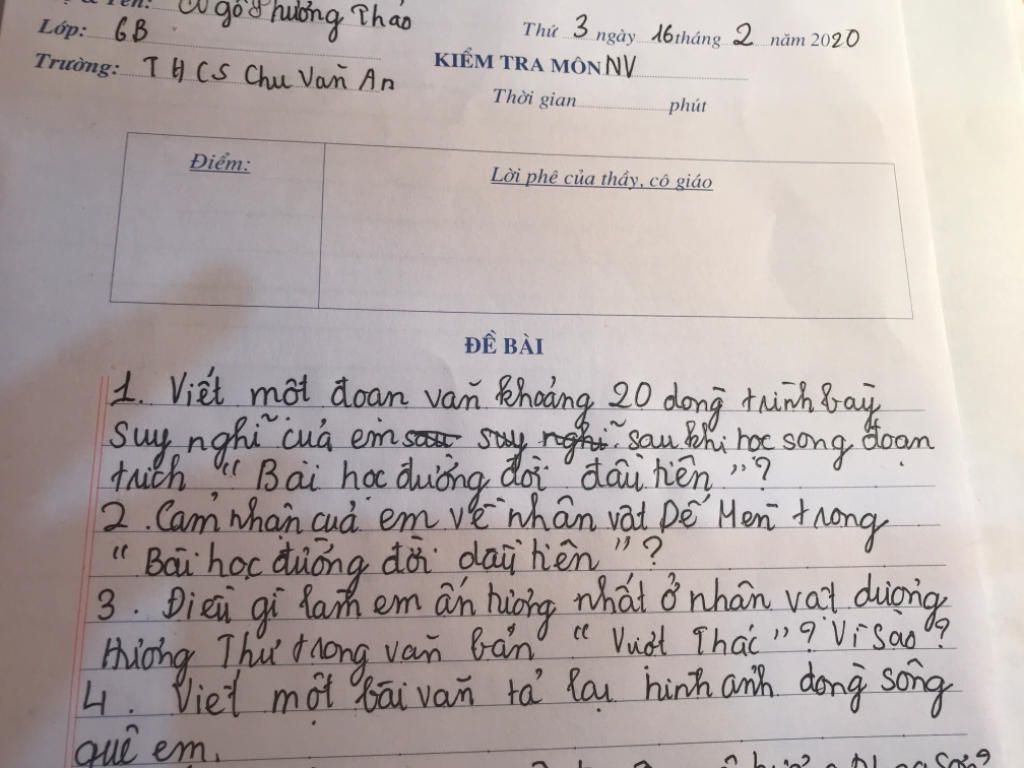 Tên: Ngô Phương Thảo
Lớp: 6B
Thứ 3 ngày 16 tháng 2 năm 2020
Trường: THCS Chu Văn An
KIỂM TRA MÔN NV
Thời gian phút
Điểm:
Lời phê của thầy, cô giáo
ĐỀ BÀI
1. Viết một đoan văn khoảng 20 dong trình bày
suy nghĩ của em sau suy nghĩ sau khi học song đoạn
trích "Bài học đường đời đầu tiên"?
2. Cảm nhận của em về nhân vật Dế Mèn trong
"Bài học đường đời dầu tiên"?
3. Điều gì làm em ấn tượng nhất ở nhân vật dượng
Hương Thư trong văn bản "Vượt Thác"? Vì sao?
4. Viết một bài văn tả lại hình ảnh dòng sông
quê em.